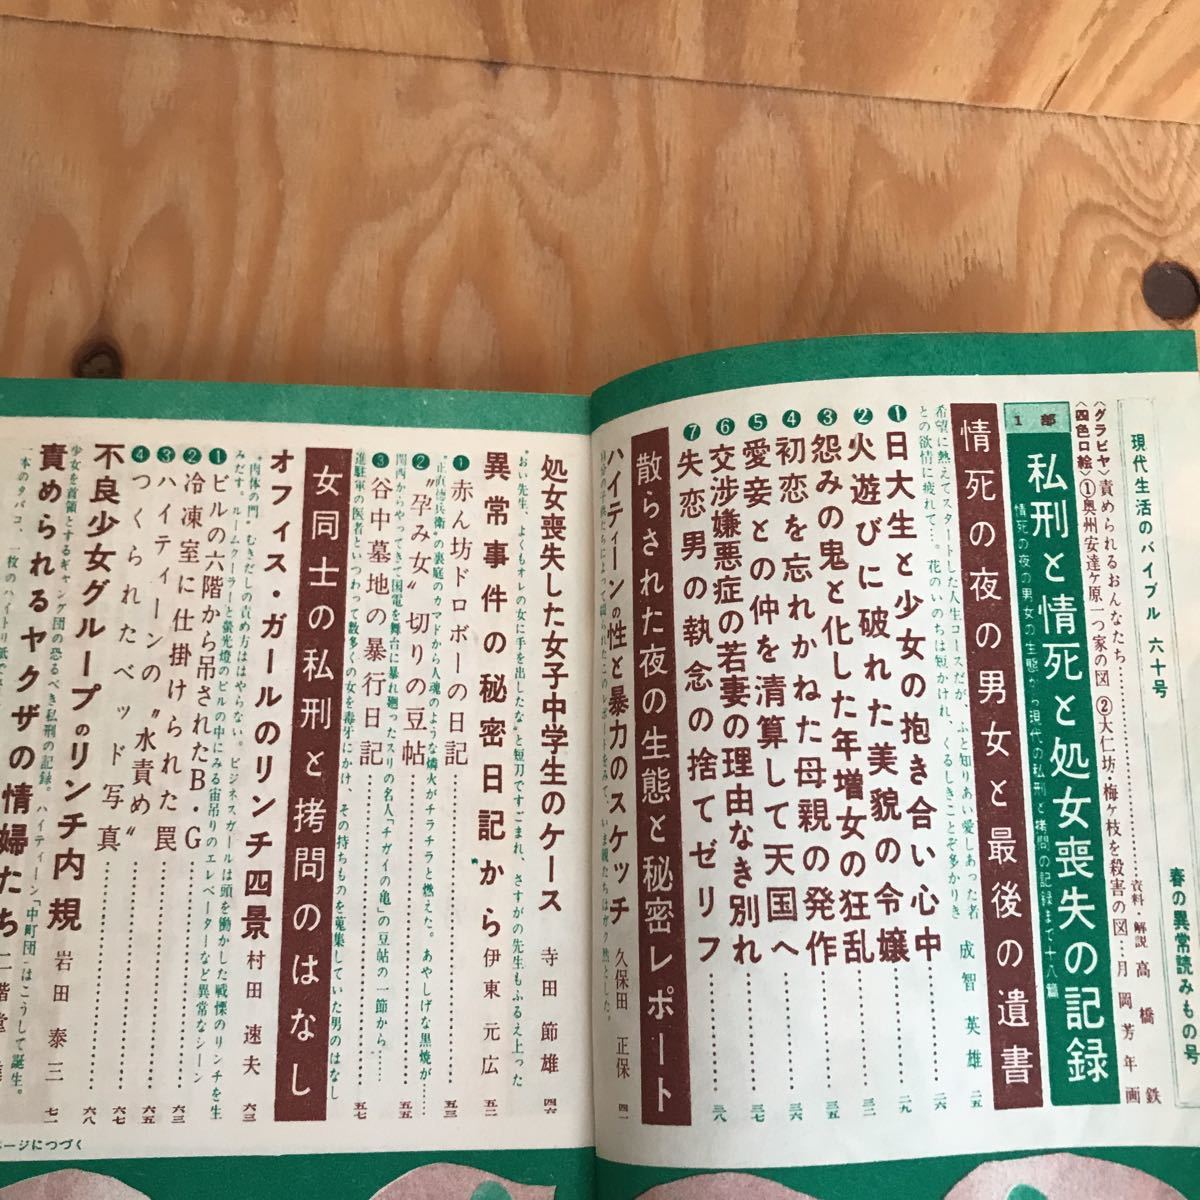 現代生活のバイブル 六十号
春の異常読みもの号
〈グラビヤ〉責められるおんなたち‥‥‥‥資料・解説 高橋 鉄
〈四色口絵〉①奥州安達ヶ原一つ家の図 ②大仁坊・梅ヶ枝を殺害の図‥‥月岡芳年画
1部
私刑と情死と処女喪失の記録
情死の夜の男女の生態から現代の私刑と拷問の記録まで十八篇
情死の夜の男女と最後の遺書
希望に熱えてスタートした人生コースだが、ふと知りあい愛しあった者
との欲情に疲れて…。花のいのちは短かけれ、くるしきことぞ多かりき
成智英雄 二五
❶日大生と少女の抱き合い心中‥‥‥‥二六
❷火遊びに破れた美貌の令嬢‥‥‥‥二九
❸怨みの鬼と化した年増女の狂乱‥‥‥‥三二
❹初恋を忘れかねた母親の発作‥‥‥‥三五
❺愛妾との仲を清算して天国へ‥‥‥‥三六
❻交渉嫌悪症の若妻の理由なき別れ
❼失恋男の執念の捨てゼリフ‥‥‥‥三八
散らされた夜の生態と秘密レポート
ハイティーンの性と暴力のスケッチ 久保田正保 四一
処女喪失した女子中学生のケース 寺田節雄 四六
〝おい先生、よくもオレの女に手を出したな〟と短刀ですごまれ、さすがの先生もふるえ上った
異常事件の秘密日記から 伊東元広 五二
❶赤ん坊ドロボーの日記‥‥‥‥五三
〝正直徳兵衛〟の裏庭のカマドから人魂のような燐火がチラチラと燃えた。あやしげな黒焼が‥‥
❷〝孕み女〟切りの豆帖‥‥‥‥五五
関西からやってきて国電を舞台に暴れ廻ったスリの名人「チガイの亀」の豆帖の一節から‥‥
❸谷中墓地の暴行日記‥‥‥‥五七
進駐軍の医者といつわって数多くの女を毒牙にかけ、その持ちものを蒐集していた男のはなし
女同士の私刑と拷問のはなし
オフィス・ガールのリンチ四景 村田速夫 六三
〝肉体の門〟むきだしの責め方ははやらない。ビジネスガールは頭を働かした戦慄のリンチを生
みだす。ルームクーラーと螢光燈のビルの中にみる宙吊りのエレベーターなど異常なシーン
❶ビルの六階から吊されたB・G‥‥‥‥六三
❷冷凍室に仕掛けられた罠‥‥‥‥六五
❸ハイティーンの〝水責め〟‥‥‥‥六七
❹つくられたベッド写真‥‥‥‥六八
不良少女グループのリンチ内規 岩田泰三 七一
少女を首領とするギャング団の恐るべき私刑の記録。ハイティーン「中町団」はこうして誕生。
責められるヤクザの情婦たち